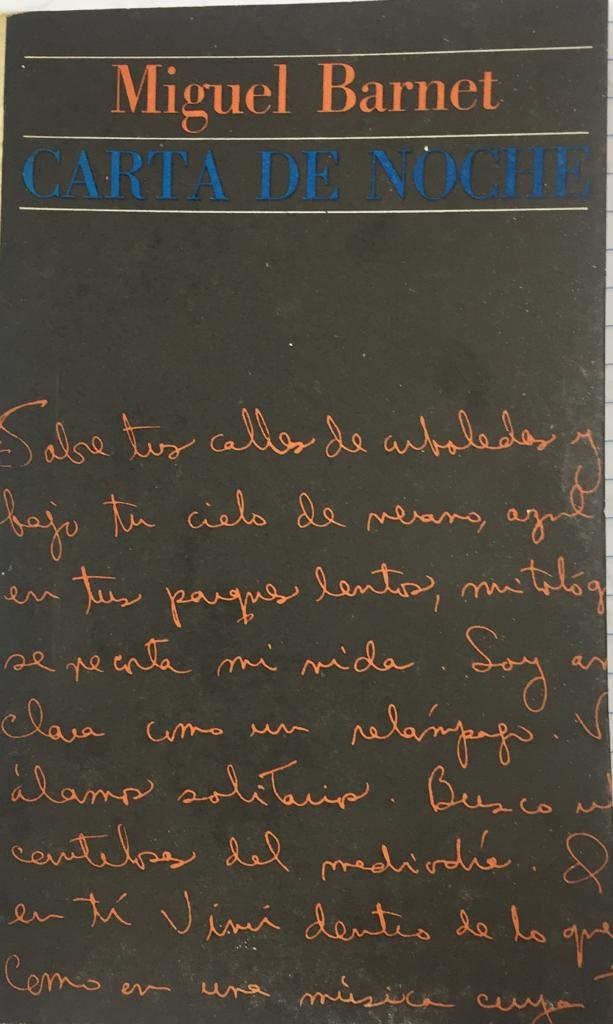 Miguel Barnet
CARTA DE NOCHE
Sobre tus calles de arboledas y
bajo tu cielo de verano, azul
en tus parques lentos, mitológ
se recorta mi vida. Soy
clara como un relámpago. V
álamos solitarios. Busco
cautelosas del mediodía.
en tí Vivir dentro de lo que
Como en una música cuya